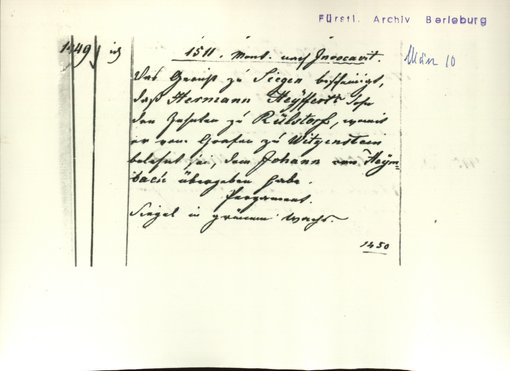 Fürstl. Archiv Berleburg
März 10
1511. Mont. nach Invocavit.
Das Gericht zu Siegen bescheinigt,
daß Hermann Heyfferts Sohn
den Zehnten zu Rülstorf, womit
er vom Grafen zu Witgenstein
belehnt sei, dem Johann von Heyn-
bach übergeben habe.
Pergament.
Siegel in grünem Wachs.
1450